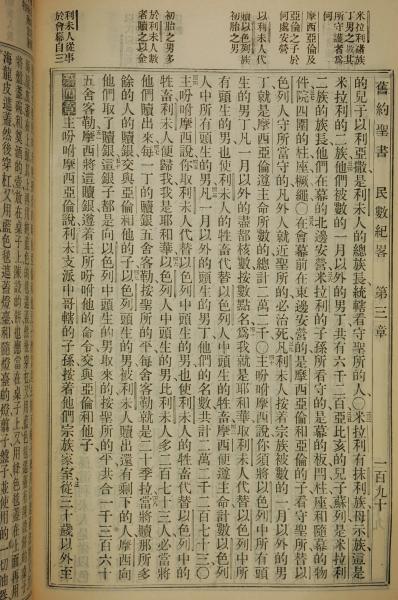 舊約聖書 民數紀畧 第三章 一百九十
米拉利諸族
丁男之數其
所守護者為
何
摩西亞倫及
亞倫之子於
何處安營
以利未人代
以色列族
贖以色列族
初胎之男
初胎之男多
於利未人數
者贖之以金
利未人從事
於會幕自三
的兒子以利亞撒是利未人的總族長統轄看守聖所的人○米拉利有抹利族母示族這是
米拉利的二族他們被數的一月以外的男丁共有六千二百亞比亥的兒子蘇列是米拉利
二族的族長他們在幕的北邊安營米拉利的子孫所看守的是幕的板閂柱座和隨幕的物
件院四圍的柱座橛繩○在會幕前在東邊安營的是摩西亞倫和亞倫的子看守聖所替以
色列人守所當守的凡外人就近聖所的必治死凡利未人按着宗族被數的一月以外的男
丁就是摩西亞倫遵主命所數的總計二萬二千○主吩咐摩西說你須將以色列中所有頭
生的男丁凡一月以外的盡都核數按數點名為我就是耶和華取利未人代替以色列中所
有頭生的男也使利未人的牲畜代替以色列人中頭生的牲畜摩西便遵主命計數以色列
人中所有頭生的男凡一月以外的頭生的男丁他們的名數共計二萬二千二百七十三○
主吩咐摩西說你取利未人代替以色列中頭生的男也使利未人的牲畜代替以色列中的
牲畜利未人便歸我我是耶和華以色列人中頭生的男比利未人多二百七十三人必當將
他們贖出來每一丁的贖銀五舍客勒按聖所的平每舍客勒就是二十季拉當將贖那所多
餘的人的贖銀交與亞倫和他的子以色列中頭生的男被利未人贖出還有剩下的人摩西向
他們取了贖銀這銀子都是向以色列中頭生的男取來的按聖所的平共合一千三百六十
五舍客勒摩西將這贖銀遵着主所吩咐他的命令交與亞倫和他子
主吩咐摩西亞倫說利未支派中哥轄的子孫按着他們宗族家室從三十歲以外至